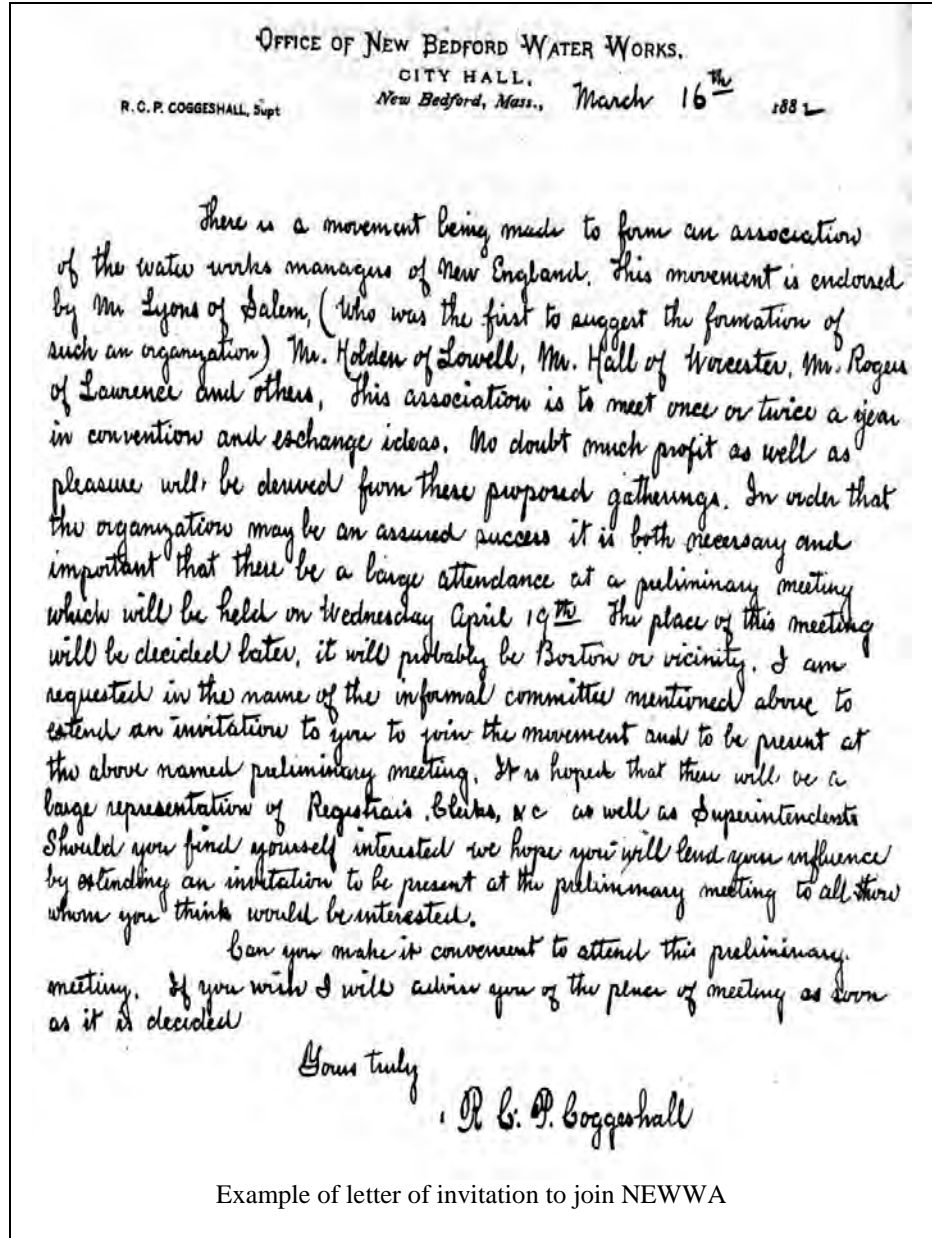 OFFICE OF NEW BEDFORD WATER WORKS,
CITY HALL,
R. C. P. COGGESHALL, Supt
New Bedford, Mass., March 16th 1882
There is a movement being made to form an association
of the water works managers of New England. This movement is endorsed
by Mr Lyons of Salem, (Who was the first to suggest the formation of
such an organization) Mr. Holden of Lowell, Mr. Hall of Worcester, Mr. Rogers
of Lawrence and others, This association is to meet once or twice a year
in convention and exchange ideas. No doubt much profit as well as
pleasure will be derived from these proposed gatherings. In order that
the organization may be an assured success it is both necessary and
important that there be a large attendance at a preliminary meeting
which will be held on Wednesday April 19th The place of this meeting
will be decided later, it will probably be Boston or vicinity. I am
requested in the name of the informal committee mentioned above to
extend an invitation to you to join the movement and to be present at
the above named preliminary meeting. It is hoped that there will be a
large representation of Registrars, Clerks, &c as well as Superintendents
Should you find yourself interested we hope you will lend your influence
by extending an invitation to be present at the preliminary meeting to all those
whom you think would be interested.
Can you make it convenient to attend this preliminary
meeting. If you wish I will advise you of the place of meeting as soon
as it is decided
Yours truly
R. C. P. Coggeshall
Example of letter of invitation to join NEWWA